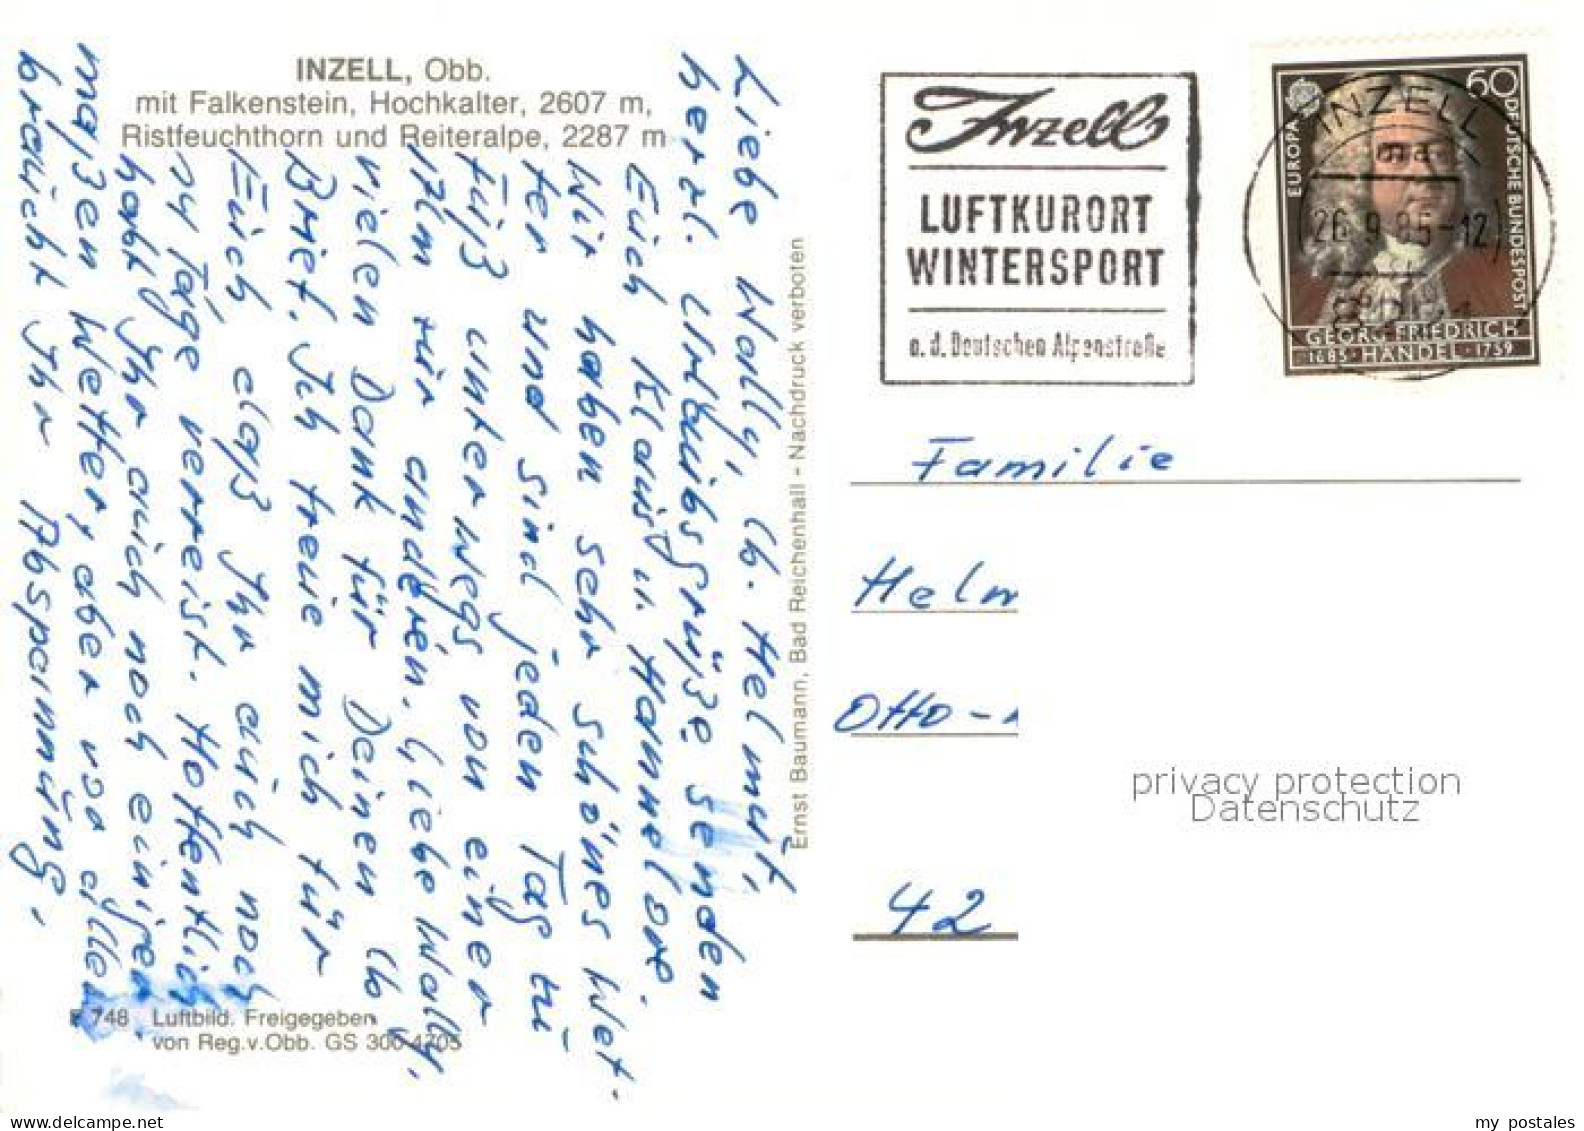 INZELL, Obb.
mit Falkenstein, Hochkalter, 2607 m,
Ristfeuchthorn und Reiteralpe, 2287 m
Liebe Wally, lb. Helmut,
herzl. Urlaubsgrüße senden
Euch Klaus u. Hannelore.
Wir haben sehr schönes Wet-
ter und sind jeden Tag zu
Fuß unterwegs von einer
Alm zur anderen. Liebe Wally,
vielen Dank für Deinen lb
Brief. Ich freue mich für
Euch, daß Ihr auch noch
14 Tage verreist. Hoffentlich
habt Ihr auch noch einiger-
maßen Wetter, aber vor allem
braucht Ihr Abspannung.
E 748 Luftbild. Freigegeben
von Reg.v.Obb. GS 300-4705
Ernst Baumann, Bad Reichenhall - Nachdruck verboten
Inzell
LUFTKURORT
WINTERSPORT
a.d. Deutschen Alpenstraße
60
EUROPA
DEUTSCHE BUNDESPOST
GEORG FRIEDRICH
1685 · HÄNDEL · 1759
INZELL
ma
26.9.85-12
8221
Familie
Helm
Otto-
42
privacy protection
Datenschutz
my postales